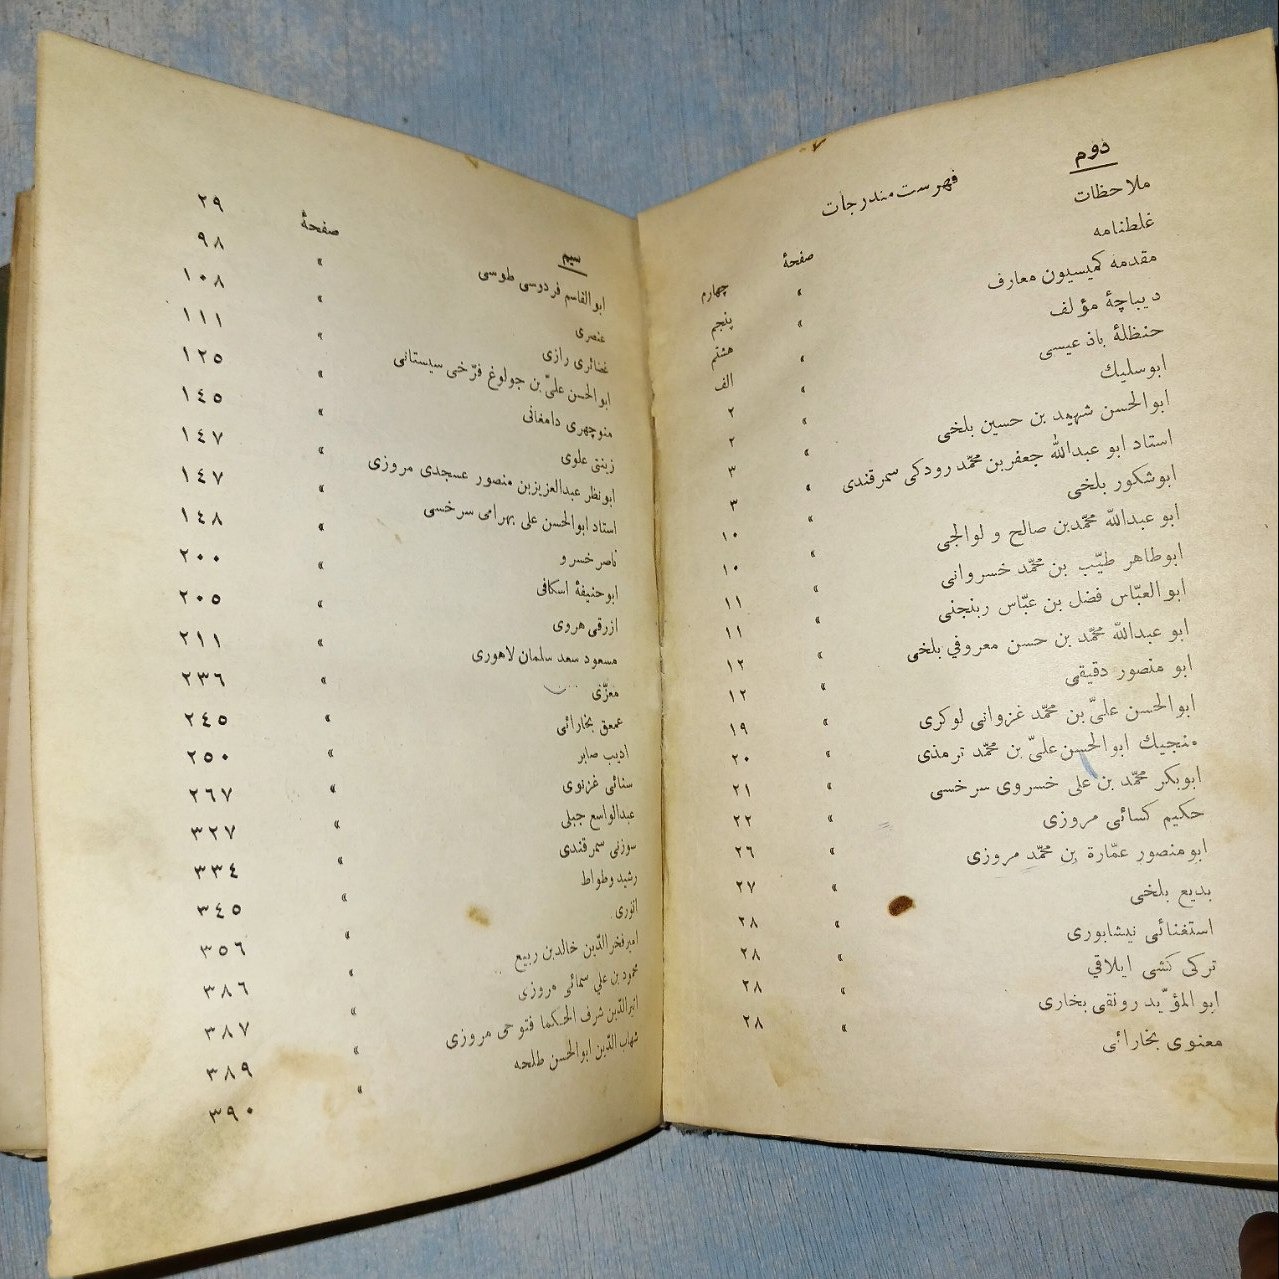 دوم
فهرست مندرجات
ملاحظات صفحهٔ چهارم
غلطنامه » پنجم
مقدمه کمیسیون معارف » هشتم
دیباچهٔ مؤلف » الف
حنظلهٔ باذ عیسی » ۲
ابوسلیك » ۲
ابوالحسن شهید بن حسین بلخی » ۳
استاد ابو عبدالله جعفر بن محمّد رودکی سمرقندی » ۳
ابوشکور بلخی » ۱۰
ابو عبدالله محمّدبن صالح و لوالجی » ۱۰
ابوطاهر طیّب بن محمّد خسروانی » ۱۱
ابوالعبّاس فضل بن عبّاس ربنجنی » ۱۱
ابو عبدالله محمّد بن حسن معروفي بلخی » ۱۲
ابو منصور دقیقی » ۱۲
ابوالحسن علیّ بن محمّد غزوانی لوکری » ۱۹
منجیك ابوالحسن علیّ بن محمّد ترمذی » ۲۰
ابوبکر محمّد بن علی خسروی سرخسی » ۲۱
حکیم کسائی مروزی » ۲۲
ابومنصور عمّارة بن محمّد مروزی » ۲٦
بدیع بلخی » ۲۷
استغنائی نیشابوری » ۲۸
ترکی کشی ایلاقي » ۲۸
ابو المؤیّد رونقی بخاری » ۲۸
معنوی بخارائی » ۲۸
سیم
ابو القاسم فردوسی طوسی صفحهٔ ۲۹
عنصری » ۹۸
غضائری رازی » ۱۰۸
ابوالحسن علیّ بن جولوغ فرّخی سیستانی » ۱۱۱
منوچهری دامغانی » ۱۲٥
زینتی علوی » ۱٤٥
ابونظر عبدالعزیزبن منصور عسجدی مروزی » ۱٤۷
استاد ابوالحسن علی بهرامی سرخسی » ۱٤۷
ناصر خسرو » ۱٤۸
ابوحنیفهٔ اسکافی » ۲۰۰
ازرقی هروی » ۲۰٥
مسعود سعد سلمان لاهوری » ۲۱۱
معزّی » ۲۳٦
عمعق بخارائی » ۲٤٥
ادیب صابر » ۲٥۰
سنائی غزنوی » ۲٦۷
عبدالواسع جبلی » ۳۲۷
سوزنی سمرقندی » ۳۳٤
رشید وطواط » ۳٤٥
انوری » ۳٥٦
امیر فخرالدّین خالدبن ربیع » ۳۸٦
محمود بن علي سمائی مروزی » ۳۸۷
اثیرالدّین شرف الحکما فتوحی مروزی » ۳۸۹
شهاب الدّین ابوالحسن طلحه » ۳۹۰